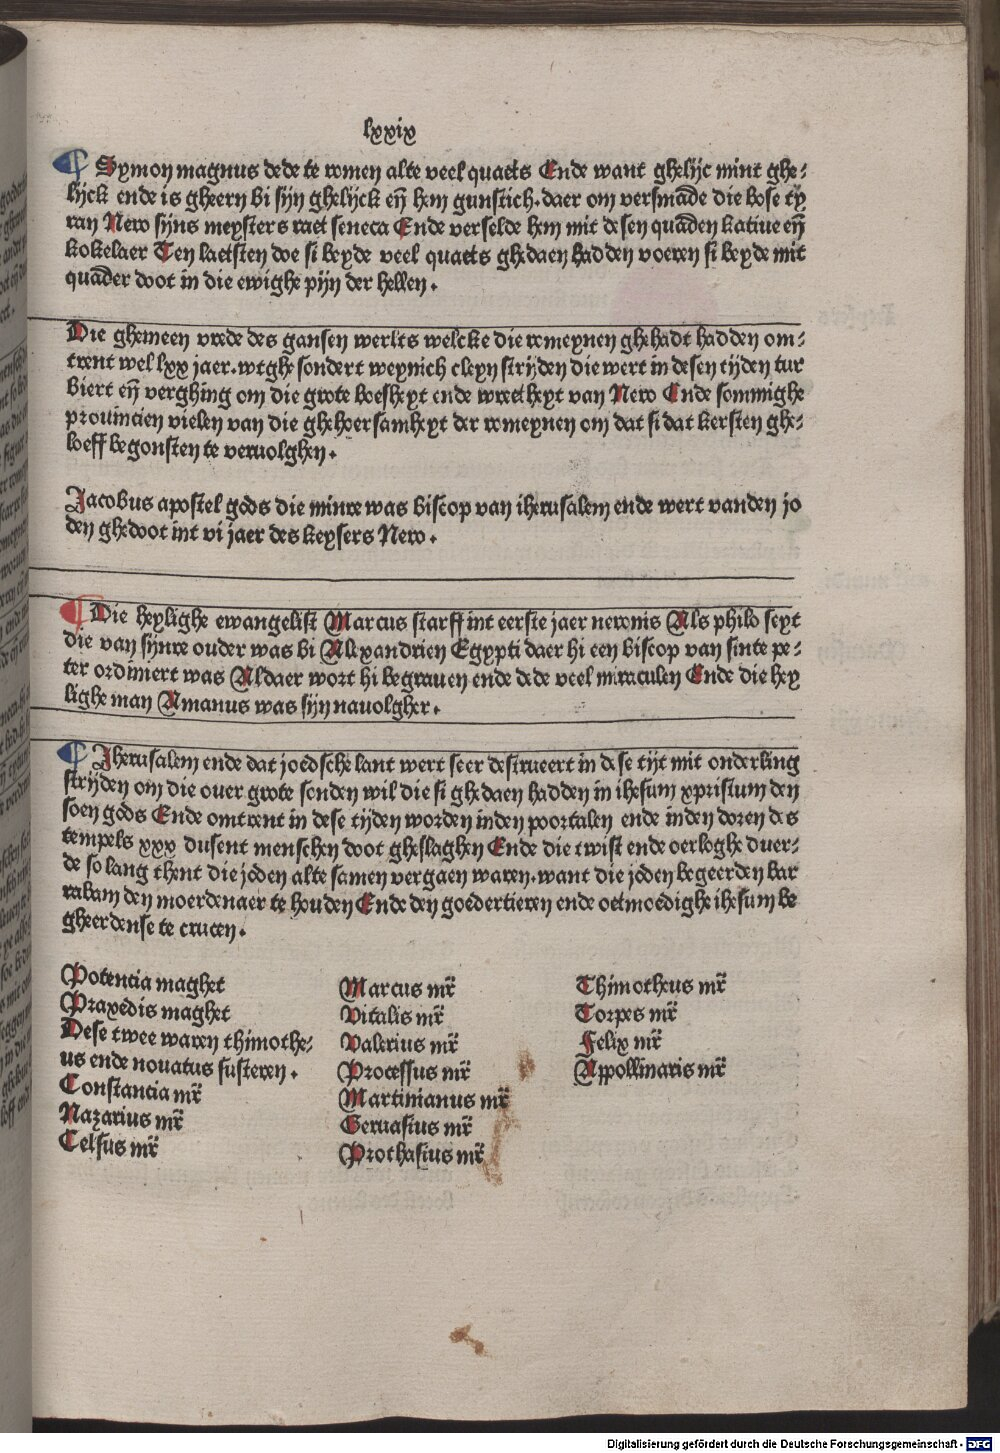 lxxix
¶ Symon magnus dede te romen alte veel quaets Ende want ghelijc mint ghe-
lijck ende is gheern bi sijn ghelijck eñ hem gunstich. daer om versmade die bose ty
ran Nero sijns meysters raet seneca Ende verselde hem mit desen quaden katiue eñ
kokelaer Ten laetsten doe si beyde veel quaets ghedaen hadden voeren si beyde mit
quader doot in die ewighe pijn der hellen.
Die ghemeen vrede des gansen werlts welcke die romeynen ghehadt hadden om-
trent wel lxx jaer. wtghesondert weynich cleyn strijden die wert in desen tijden tur
biert eñ verghing om die grote boesheyt ende wreetheyt van Nero Ende sommighe
prouincien vielen van die ghehoersamheyt der romeynen om dat si dat kersten ghe-
loeff begonsten te veruolghen.
Jacobus apostel gods die minre was biscop van iherusalem ende wert vanden jo
den ghedoot int vi jaer des keysers Nero.
¶ Die heylighe ewangelist Marcus starff int eerste jaer neronis Als philo seyt
die van sijnre ouder was bi Alexandrien Egypti daer hi een biscop van sinte pe-
ter ordiniert was Aldaer wort hi begrauen ende dede veel miraculen Ende die hey
lighe man Amanus was sijn nauolgher.
¶ Jherusalem ende dat joedsche lant wert seer destrueert in dese tijt mit onderling
strijden om die ouer grote sonden wil die si ghedaen hadden in ihesum xpristum den
soen gods Ende omtrent in dese tijden worden inden poortalen ende inden doren des
tempels xxx dusent menschen doot gheslaghen Ende die twist ende oerloghe duer-
de so lang thent die joden alte samen vergaen waren. want die joden begeerden bar
rabam den moerdenaer te houden Ende den goedertieren ende oetmoedighe ihesum be
gheerdense te crucen.
Potencia maghet
Praxedis maghet
Dese twee waren thimothe-
us ende nouatus susteren.
Constancia mr̄
Nazarius mr̄
Celsus mr̄
Marcus mr̄
Vitalis mr̄
Valerius mr̄
Processus mr̄
Martinianus mr̄
Geruasius mr̄
Prothasius mr̄
Thimotheus mr̄
Torpes mr̄
Felix mr̄
Appollinaris mr̄
Digitalisierung gefördert durch die Deutsche Forschungsgemeinschaft - DFG